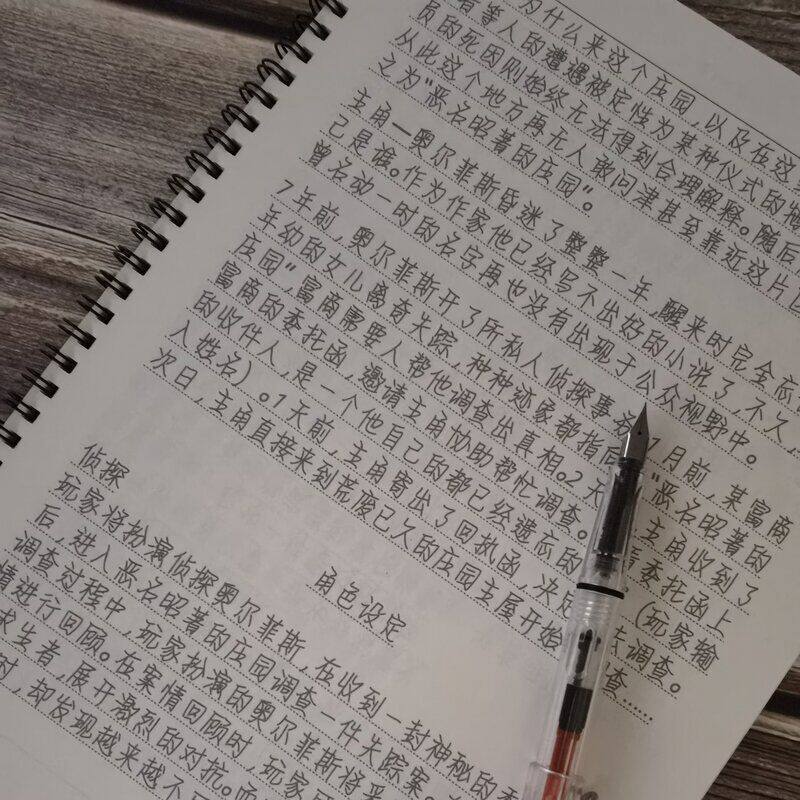 为什么来这个庄园,以及在这
者等人的遭遇被定性为某种仪式的牺
员的死因则始终无法得到合理解释。随后
从此这个地方再无人敢问津甚至靠近这片
之为“恶名昭著的庄园”。
主角一奥尔菲斯昏迷了整整一年,醒来时完全忘
己是谁。作为作家他已经写不出好的小说了,不久,
曾名动一时的名字再也没有出现于公众视野中。
7年前,奥尔菲斯开了所私人侦探事 月前,某富商
年幼的女儿离奇失踪,种种迹象都指向“恶名昭著的
庄园”,富商需要人帮他调查出真相。2天 主角收到了
富商的委托函,邀请主角协助帮忙调查。 委托函上
的收件人,是一个他自己的都已经遗忘的 (玩家输
入姓名)。1天前,主角寄出了回执函,决定 去调查。
次日,主角直接来到荒废已久的庄园主屋开始 查……
角色设定
侦探
玩家将扮演侦探奥尔菲斯,在收到一封神秘的委
后,进入恶名昭著的庄园调查一件失踪案。
调查过程中,玩家扮演的奥尔菲斯将
情进行回顾。在案情回顾时,玩家
求生者,展开激烈的对抗。而
时,却发现越来越不